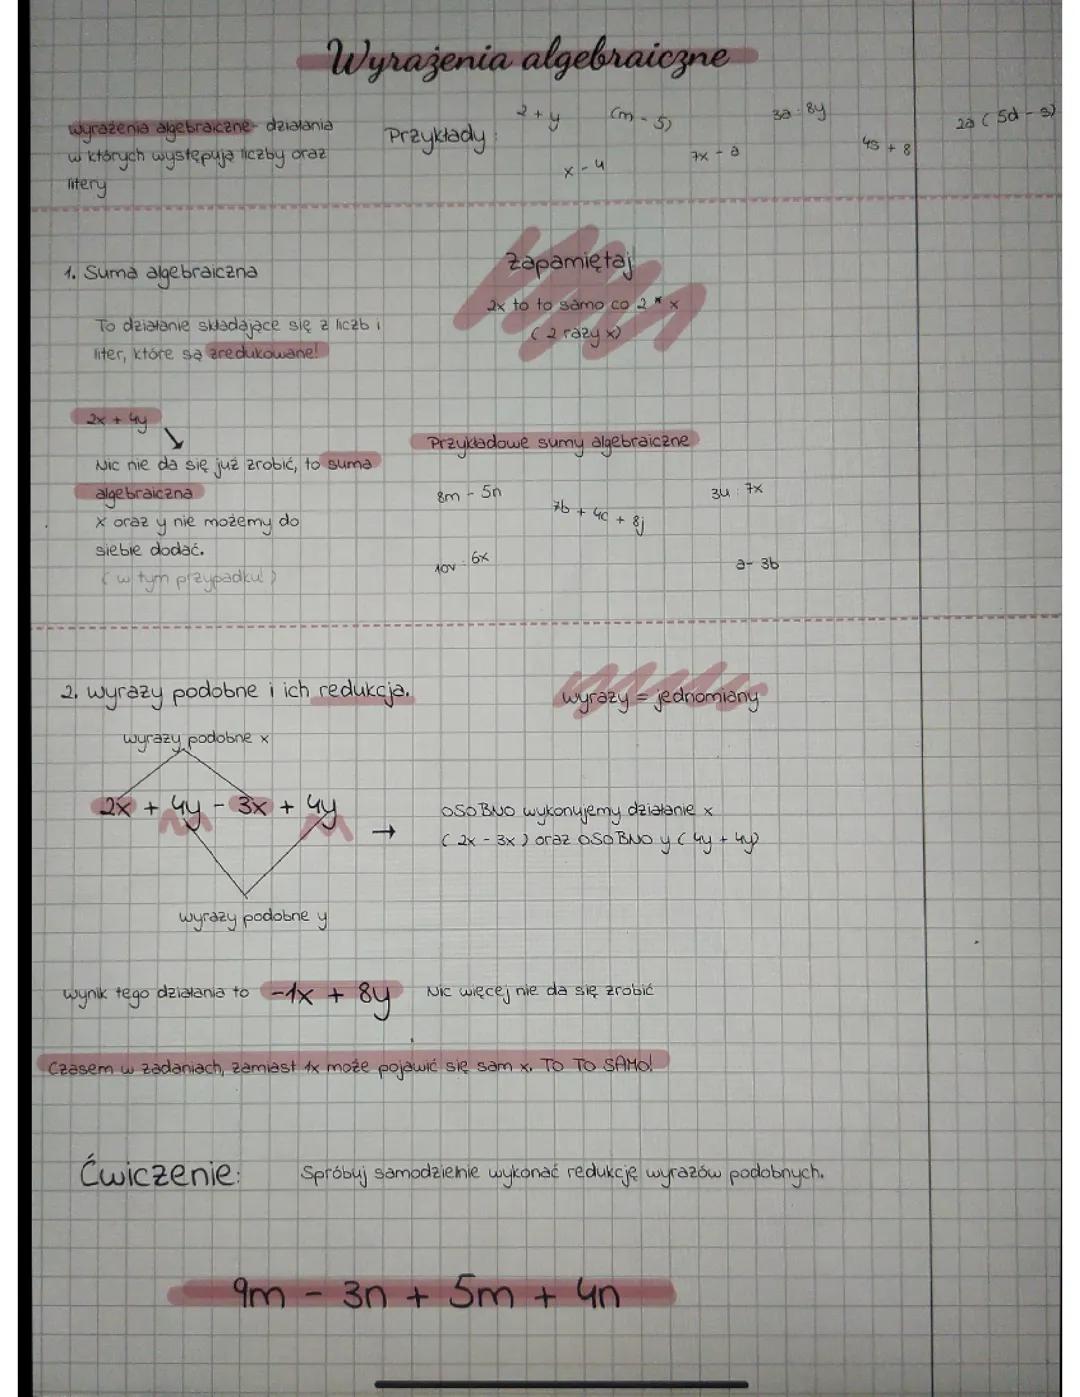 Wyrażenia algebraiczne
wyrażenia algebraiczne- działania
w których występują liczby oraz
litery
Przykłady:
2 + y
(m - 5)
3a : 8y
2a ( 5d - s)
x - 4
7x - a
4s + 8
1. Suma algebraiczna
To działanie składające się z liczb i
liter, które są zredukowane!
Zapamiętaj
2x to to samo co 2 * x
( 2 razy x)
2x + 4y
Nic nie da się już zrobić, to suma
algebraiczna
x oraz y nie możemy do
siebie dodać.
( w tym przypadku! )
Przykładowe sumy algebraiczne
8m - 5n
7b + 4c + 8j
3u : 7x
10v : 6x
a- 3b
2. wyrazy podobne i ich redukcja.
wyrazy = jednomiany
wyrazy podobne x
2x + 4y - 3x + 4y
→
OSOBNO wykonujemy działanie x
( 2x - 3x ) oraz OSOBNO y ( 4y + 4y)
wyrazy podobne y
wynik tego działania to -1x + 8y Nic więcej nie da się zrobić
Czasem w zadaniach, zamiast 1x może pojawić się sam x. TO TO SAMO!
Ćwiczenie: Spróbuj samodzielnie wykonać redukcję wyrazów podobnych.
9m - 3n + 5m + 4n